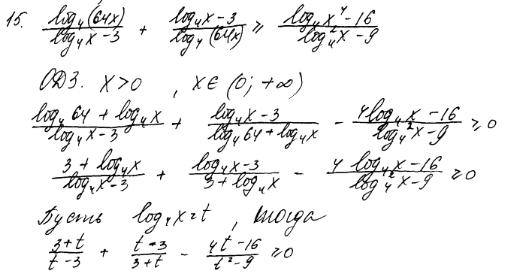 15. log₄(64x)/(log₄x-3) + (log₄x-3)/log₄(64x) ≥ (log₄x⁴-16)/(log₄²x-9)
ОДЗ. x>0 , x∈(0; +∞)
(log₄64 + log₄x)/(log₄x-3) + (log₄x-3)/(log₄64+log₄x) - (4log₄x-16)/(log₄²x-9) ≥0
(3 + log₄x)/(log₄x-3) + (log₄x-3)/(3+log₄x) - (4 log₄x-16)/(log₄²x-9) ≥0
Пусть log₄x=t , тогда
(3+t)/(t-3) + (t-3)/(3+t) - (4t-16)/(t²-9) ≥0